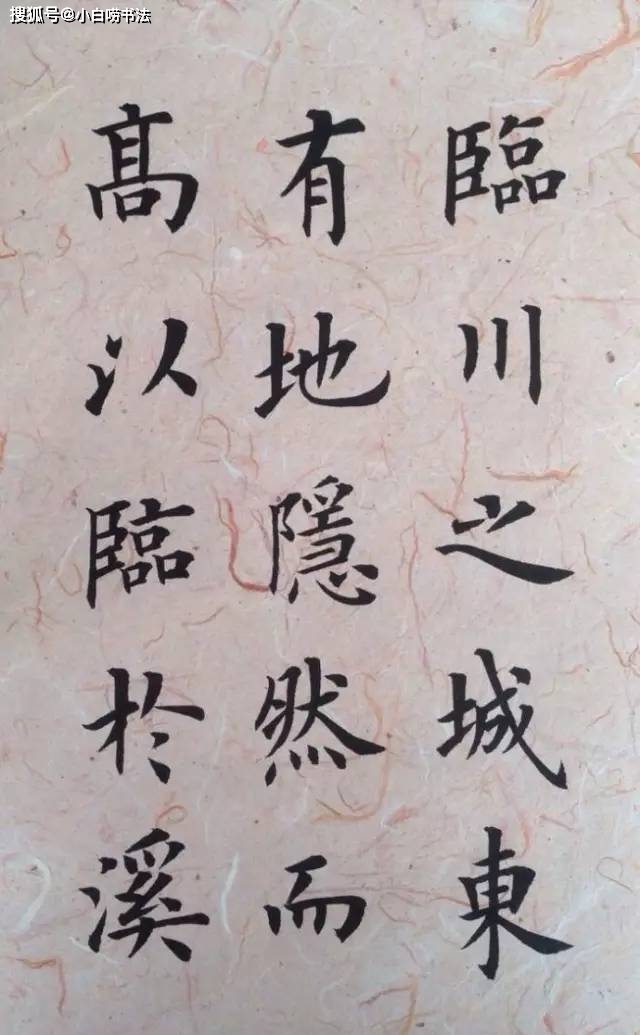 搜狐号@小白唠书法
臨川之城東
有地隱然而
高以臨於溪